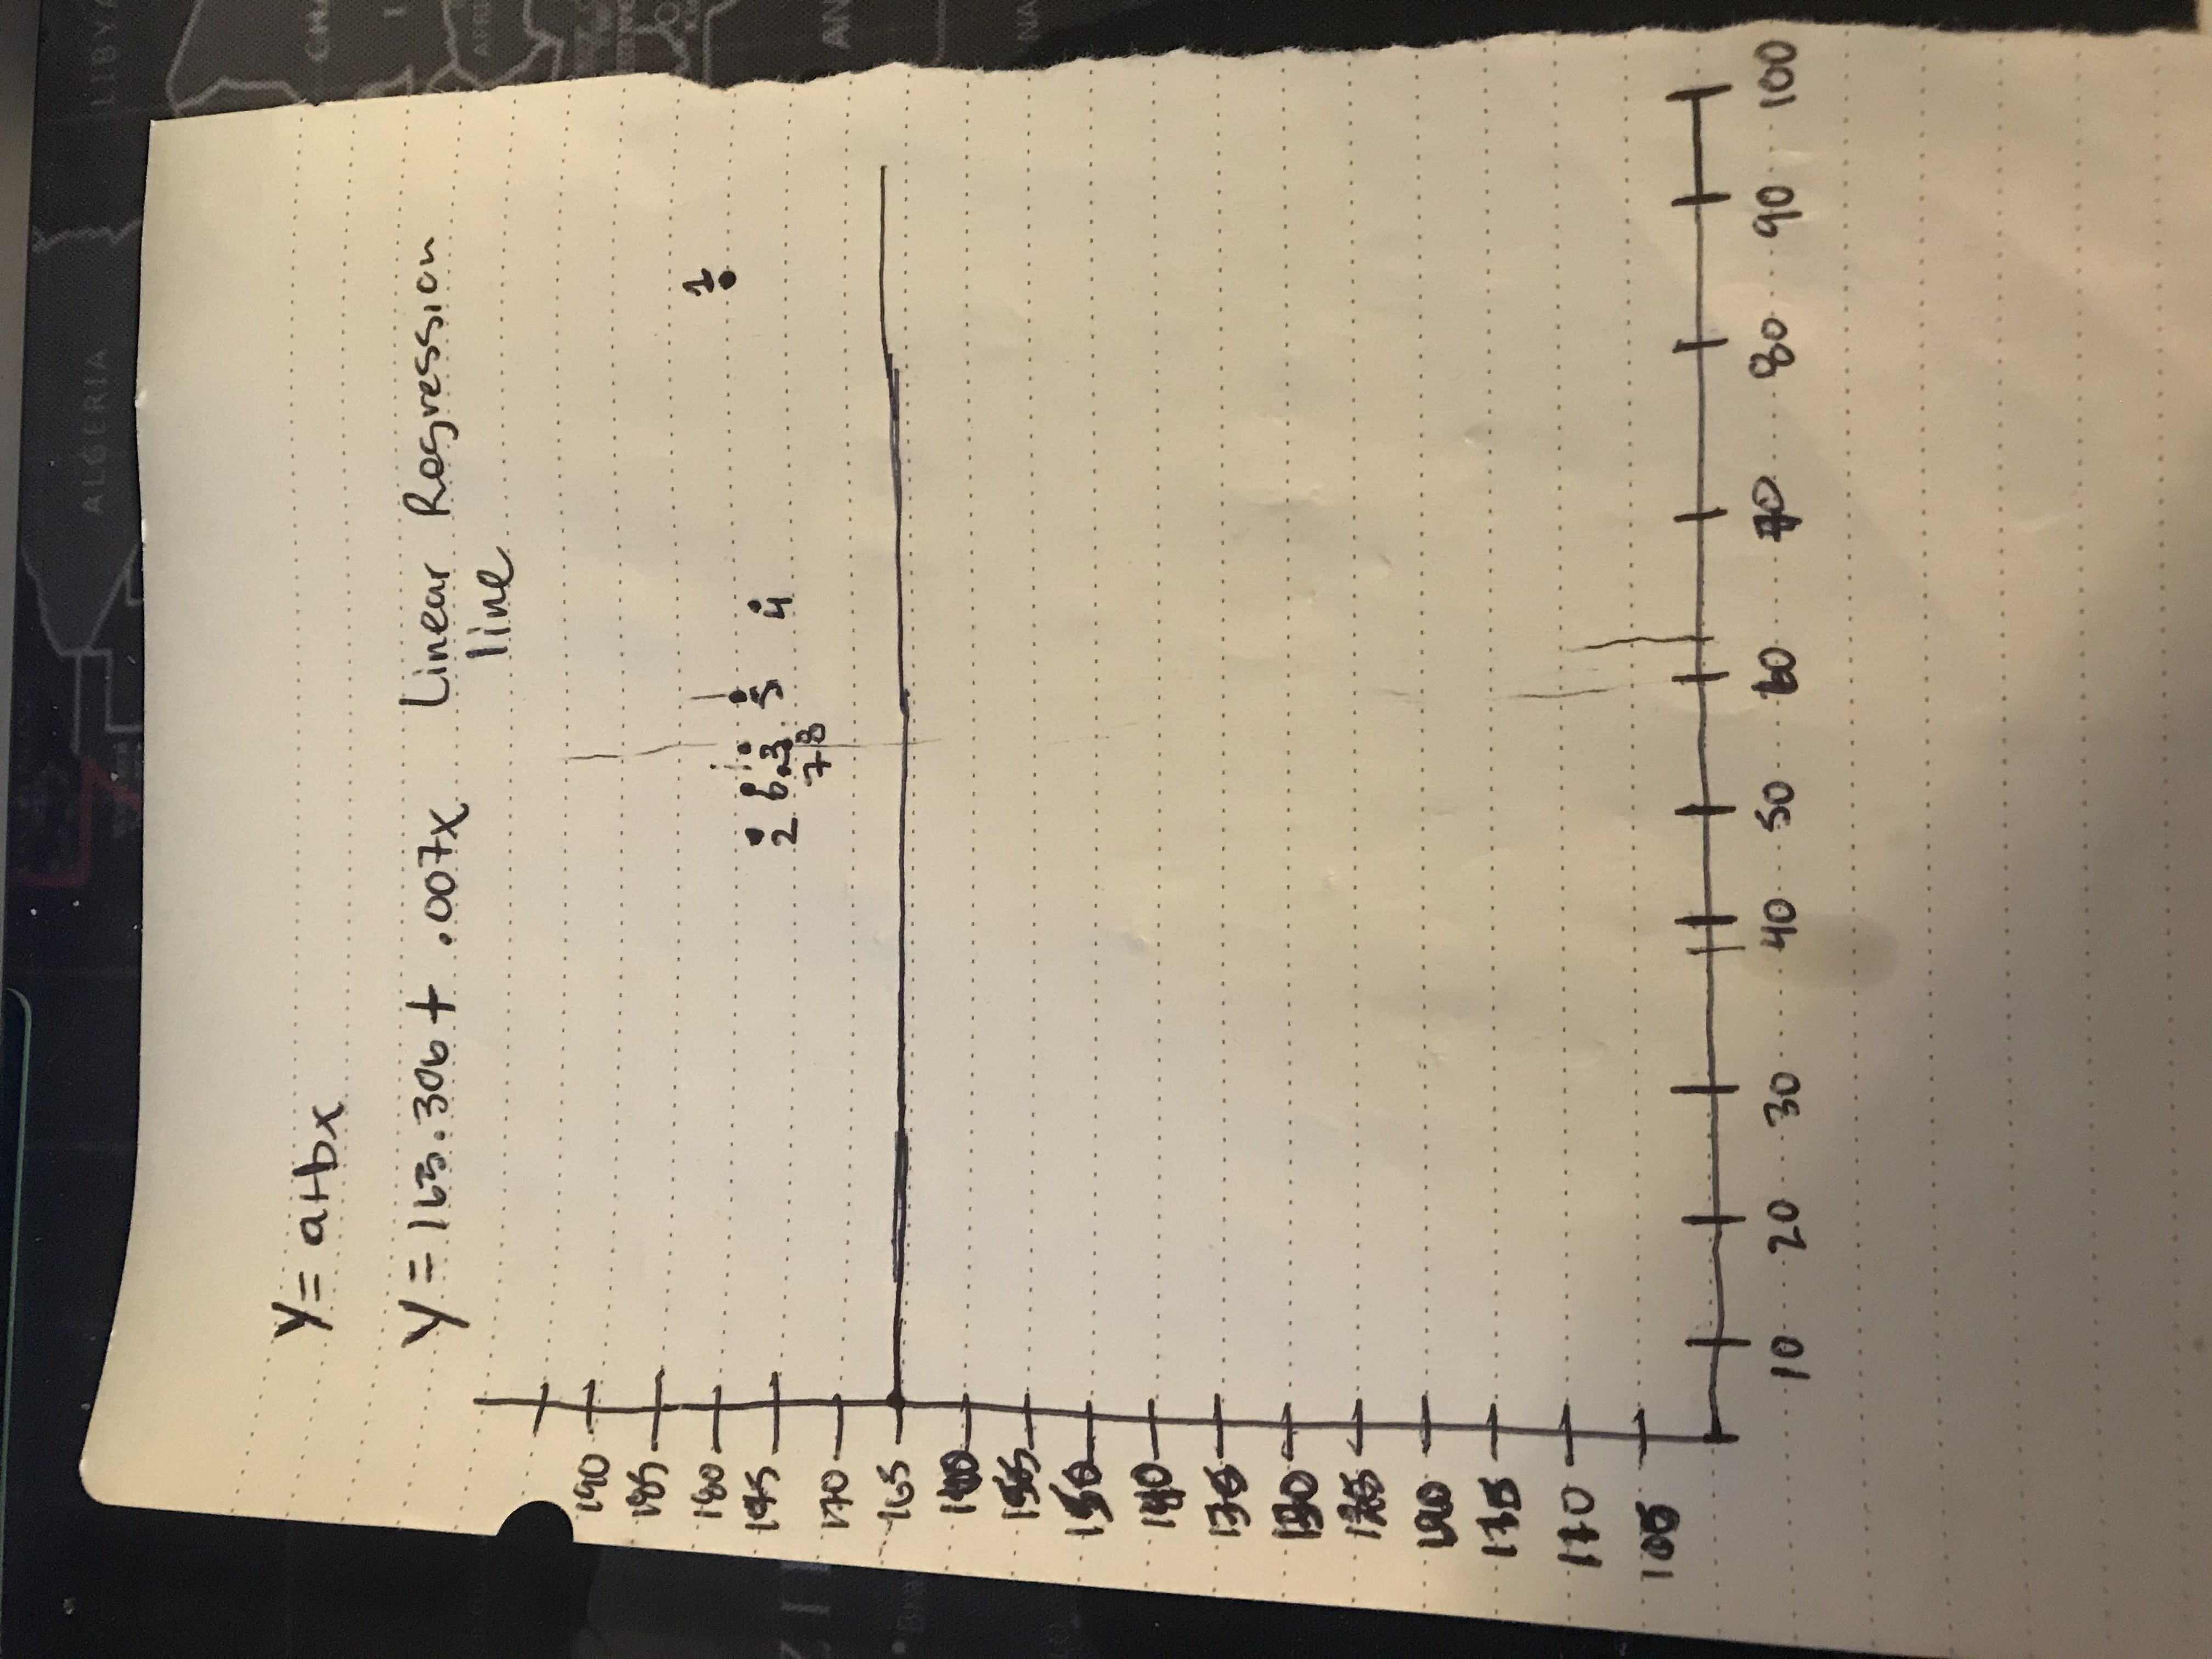 ALGERIA
LIBYA
y = a+bx
y = 163.306 + .007x Linear Regression
line
190
185
180
175
170
165
160
155
150
140
135
130
125
120
115
110
105
1
2 6 3 5 4
7 8
10 20 30 40 50 60 70 80 90 100